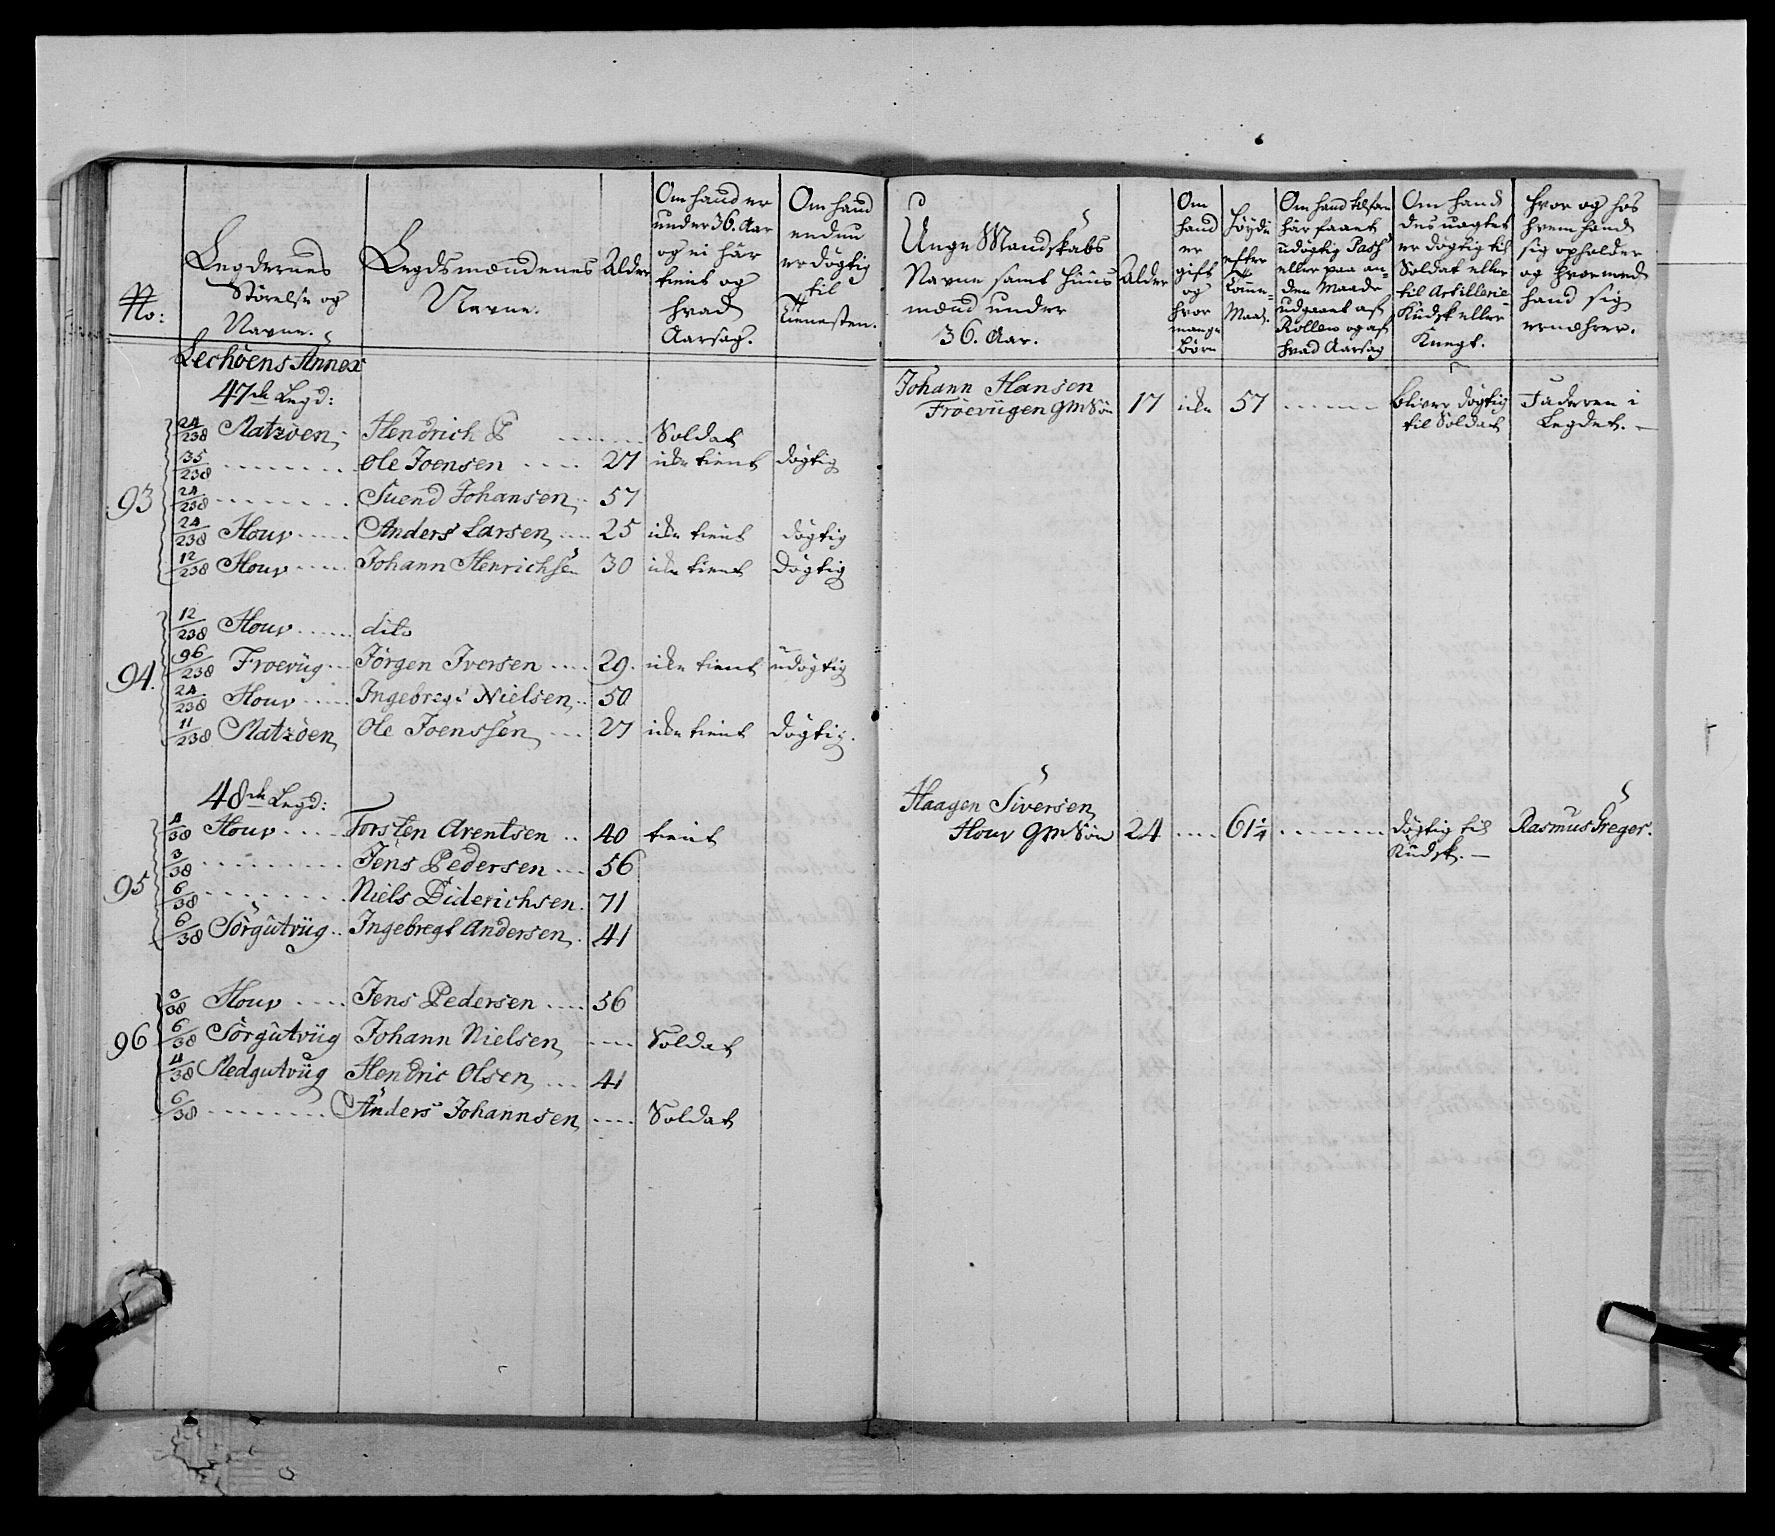 No:
Legdernes
Störelse og
Navne.
Legdsmændenes
Navne.
Alder
Om hand er
under 36. Aar
og ei här
tient og
hvad
Aarsag.
Om hand
endnu
er dögtig
til
Tienesten.
Unge Mandskabs
Navne samt Huus
mænd under
36. Aar.
Alder
Om
hand
er
gift
og
hvor
mange
börn
Höyde
efter
Maal.
Om hand
här faaet
udögtig Pass
eller paa an-
den Maade
udgaaet af
Rollen og af
hvad Aarsag
Om hand
des uagtet
er dögtig til
Soldat eller
til Artillerie
Kudsk eller
Knegt.
hvor og hos
hvem hand
sig opholder
og hvormed
hand sig
ernæhrer.
Lechöens Annex
47de Legd:
Johann Hansen
Fröevügen GM Sön 17 icke 57 ....... bliver dögtig Faderen i
til Soldat Legdet. —
93
24/238 Matzöen, Hendrich P ........ Soldat
35/238 ........ Ole Joensen .... 27 icke tient dögtig
24/238 ........ Suend Johansen, 57
24/238 Houv ..... Anders Larsen, .... 25 icke tient dögtig
12/238 Houv ..... Johann Henrichsen 30 icke tient dögtig
94.
12/238 Houv ...... dito
96/238 Froevüg ... Jörgen Iversen .... 29. icke tient udögtig
24/238 Houv ..... Ingebregt Nielsen, .. 50
11/238 Matzöen, Ole Joenssen, ... 27 icke tient dögtig.
48de Legd:
Haagen Siversen,
Houv GM Sön 24 .... 61 1/4 ........ dögtig til Rasmus Greger.
Kudsk. —
95
4/38 Houv ..... Torsten Arentsen .. 40 tient
3/38 ......... Jens Pedersen ... 56
6/38 ......... Niels Diderichsen. 71
6/38 Sörgutvüg .. Ingebregt Andersen, . 41
96
3/38 Houv ..... Jens Pedersen .... 56
6/38 Sörgutvüg Johann Nielsen, .... Soldat
4/38 Nedgutvüg Hendric Olsen, .... 41
6/38 ......... Anders Johannsen, .... Soldat